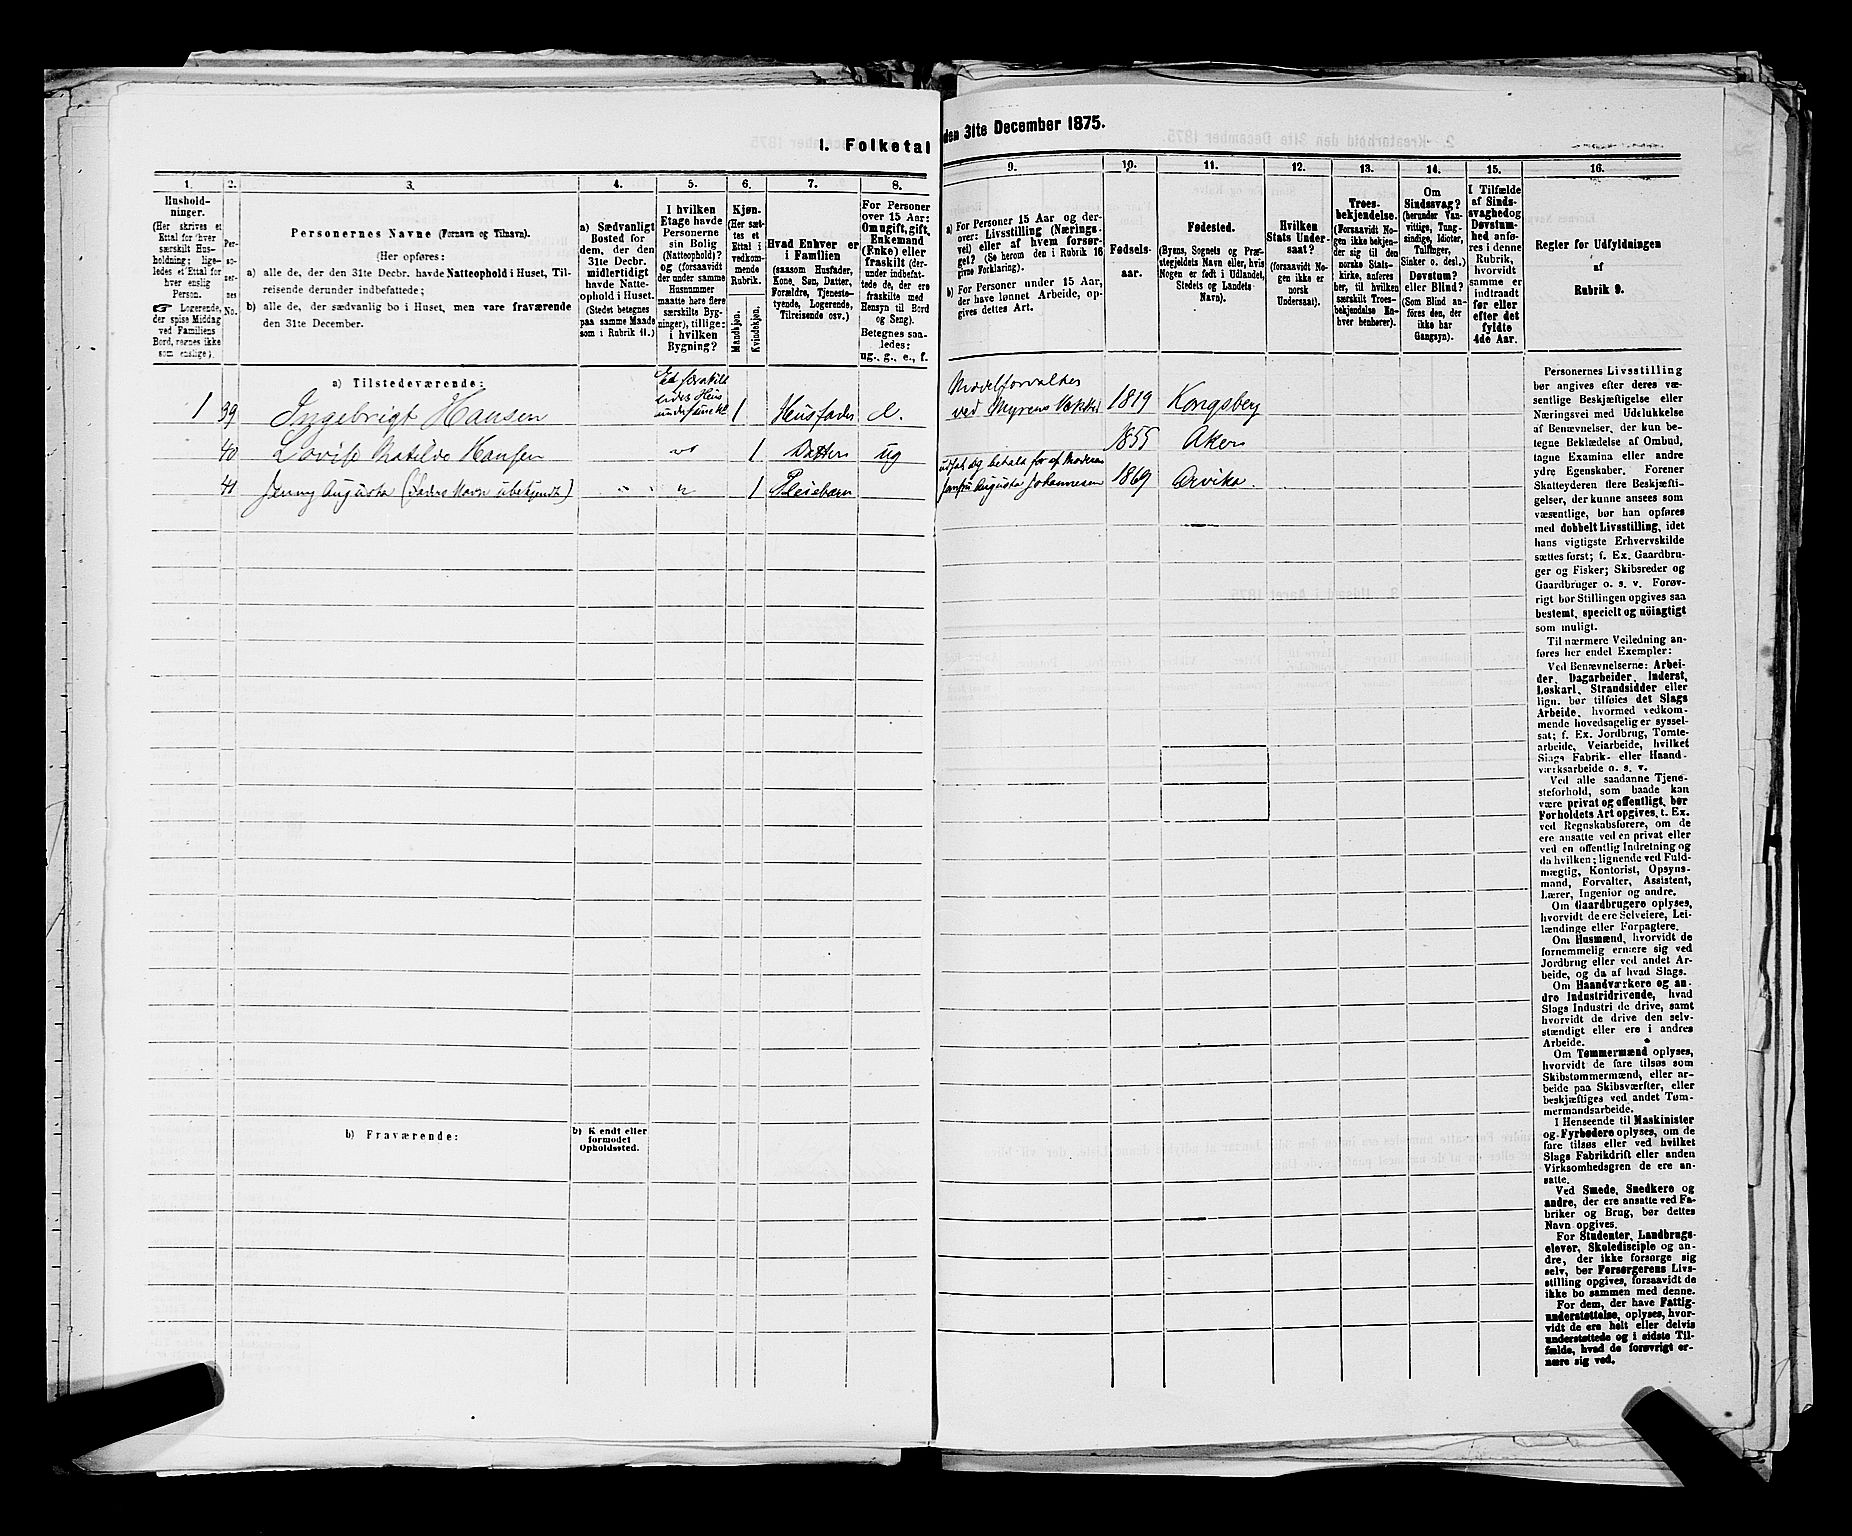 1. Folketal
den 31te December 1875.
1. 2. 3. 4. 5. 6. 7. 8.
Hushold-
ninger.
(Her skrives et
Ettal for hver
særskilt Hus-
holdning; lige-
ledes et Ettal for
hver enslig
Person.
Logerende,
der spise Middag
ved Familiens
Bord, regnes ikke
som enslige).
Per-
so-
ner-
nes
No.
Personernes Navne (Fornavn og Tilnavn).
(Her opføres:
a) alle de, der den 31te Decbr. havde Natteophold i Huset, Til-
reisende derunder indbefattede;
b) alle de, der sædvanlig bo i Huset, men vare fraværende
den 31te December.
a) Sædvanligt
Bosted for
dem, der den
31te Decbr.
midlertidigt
havde Natte-
ophold i Huset.
(Stedet betegnes
paa samme Maade
som i Rubrik 11.)
I hvilken
Etage havde
Personerne
sin Bolig
(Natteophold)?
og (forsaavidt
der under samme
Husnummer
maatte høre flere
særskilte Byg-
ninger), tillige:
i hvilken
Bygning?
Kjøn.
(Her sæt-
tes et
Ettal i
vedkom-
mende
Rubrik.
Mandkjøn.
Kvindekjøn.
Hvad Enhver er
i Familien
(saasom Husfader,
Kone, Søn, Datter,
Forældre, Tjeneste-
tyende, Logerende,
Tilreisende osv.)
For Personer
over 15 Aar:
Om ugift, gift,
Enkemand
(Enke) eller
fraskilt (der-
under indbefat-
tede de, der ere
fraskilte med
Hensyn til Bord
og Seng).
Betegnes saa-
ledes:
ug., g., e., f.
a) Tilstedeværende:
1 39 Ingebrigt Hansen 1 Husfader e.
40 Lovise Matilde Hansen 1 Datter ug
41 Jenny Augusta (Faders Navn ubekjendt) " 1 Pleiebarn
b) Fraværende:
b) Kendt eller
formodet
Opholdssted.
9. 10. 11. 12. 13. 14. 15. 16.
a) For Personer 15 Aar og der-
over: Livsstilling (Nærings-
vei) eller af hvem forsør-
get? (Se herom den i Rubrik 16
givne Forklaring).
b) For Personer under 15 Aar,
der have lønnet Arbeide, op-
gives dettes Art.
Fødsels-
aar.
Fødested.
(Byens, Sognets og Præ-
stegjeldets Navn eller, hvis
Nogen er født i Udlandet,
Stedets og Landets
Navn).
Hvilken
Stats Under-
saat?
(forsaavidt No-
gen ikke er
norsk
Undersaat).
Troes-
bekjendelse.
(Forsaavidt No-
gen ikke bekjen-
der sig til den
norske Stats-
kirke, anføres
her, til hvilken
særskilt Troes-
bekjendelse En-
hver henhører).
Om
Sindssvag?
(herunder Van-
vittige, Tung-
sindige, Idioter,
Tullinger,
Sinker o. desl.)
Døvstum?
eller Blind?
(Som Blind an-
føres den, der
ikke har
Gangsyn).
I Tilfælde
af Sinds-
svaghed og
Døvstum-
hed anfø-
res i denne
Rubrik,
hvorvidt
samme er
indtraadt
før eller
efter det
fyldte
4de Aar.
Regler for Udfyldningen
af
Rubrik 9.
Modelforvalter
ved Myrens Værksted 1819 Kongsberg
1855 Aker
udsat og betalt for af Moderen
Jomfru Augusta Johannesen 1869 Arvika.
Personernes Livsstilling
bør angives efter deres væ-
sentlige Beskjæftigelse eller
Næringsvei med Udelukkelse
af Benævnelser, der kun be-
tegne Beklædelse af Ombud,
tagne Examina eller andre
ydre Egenskaber. Forener
Skatteyderen flere Beskjæfti-
gelser, der kunne ansees som
væsentlige, bør han opføres
med dobbelt Livsstilling, idet
hans vigtigste Erhvervskilde
sættes først; f. Ex. Gaardbru-
ger og Fisker; Skibsreder og
Gaardbruger o. s. v. Forøv-
rigt bør Stillingen opgives saa
bestemt, specielt og nöiagtigt
som muligt.
Til nærmere Veiledning an-
føres her endel Exempler:
Ved Benævnelserne: Arbei-
der, Dagarbeider, Inderst,
Løskarl, Strandsidder eller
lign. bør tilføies det Slags
Arbeide, hvormed vedkom-
mende hovedsagelig er syssel-
sat; f. Ex. Jordbrug, Tomte-
arbeide, Veiarbeide, hvilket
Slags Fabrik- eller Haand-
værksarbeide o. s. v.
Ved alle saadanne Tjene-
steforhold, som baade kan
være privat og offentligt, bør
Forholdets Art opgives, t. Ex.
ved Regnskabsførere, om de
ere ansatte ved en privat eller
ved en offentlig Indretning og
da hvilken; lignende ved Fuld-
mægtig, Kontorist, Opsyns-
mand, Forvalter, Assistent,
Lærer, Ingeniør og andre.
Om Gaardbrugere oplyses,
hvorvidt de ere Selveiere, Lei-
lændinge eller Forpagtere.
Om Husmænd, hvorvidt de
fornemmelig ernære sig ved
Jordbrug eller ved andet Ar-
beide, og da af hvad Slags.
Om Haandværkere og an-
dre Industridrivende, hvad
Slags Industri de drive, samt
hvorvidt de drive den selv-
stændigt eller ere i andres
Arbeide.
Om Tømmermænd oplyses,
hvorvidt de fare tilsøs som
Skibstømmermænd, eller ar-
beide paa Skibsværfter, eller
beskjæftiges ved andet Tøm-
mermandsarbeide.
I Henseende til Maskinister
og Fyrbødere oplyses, om de
fare tilsøs eller ved hvilket
Slags Fabrikdrift eller anden
Virksomhedsgren de ere an-
satte.
Ved Smede, Snedkere og
andre, der ere ansatte ved Fa-
briker og Brug, bør dettes
Navn opgives.
For Studenter, Landbrugs-
elever, Skoledisciple og an-
dre, der ikke forsørge sig
selv, bør Forsørgerens Livs-
stilling opgives, forsaavidt de
ikke bo sammen med denne.
For dem, der have Fattig-
understøttelse, oplyses, hvor-
vidt de ere helt eller delvis
understøttede og i sidste Til-
fælde, hvad de forøvrigt er-
nære sig ved.